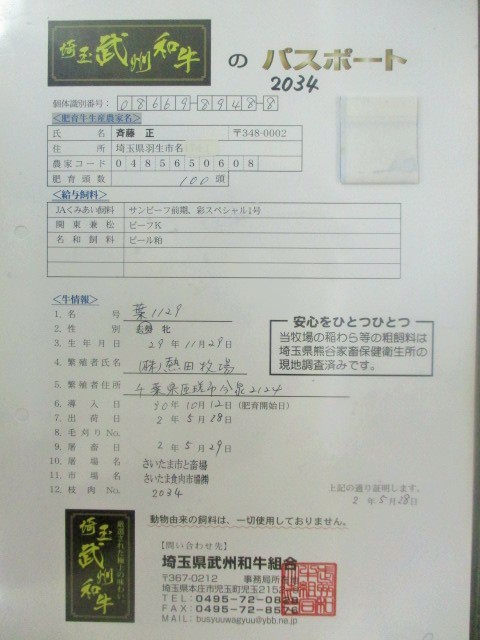 埼玉武州和牛 の パスポート
2034
個体識別番号: 08669-8948-8
<肥育牛生産農家名>
氏 名 斉藤 正 〒348-0002
住 所 埼玉県羽生市名
農家コード 0485650608
肥育頭数 100 頭
<給与飼料>
JAくみあい飼料 サンビーフ前期、彩スペシャル1号
関東兼松 ビーフK
名和飼料 ビール粕
<牛情報>
1. 名 号 葉1129
2. 性 別 去勢 牝
3. 生年月日 29年11月29日
4. 繁殖者氏名 (株)熱田牧場
5. 繁殖者住所 千葉県匝瑳市今泉2124
6. 導入日 30年10月12日(肥育開始日)
7. 出荷日 2年5月28日
8. 毛刈りNo.
9. 屠畜日 2年5月29日
10. 屠場名 さいたま市と畜場
11. 市場名 さいたま食肉市場㈱
12. 枝肉No. 2034
安心をひとつひとつ
当牧場の稲わら等の粗飼料は
埼玉県熊谷家畜保健衛生所の
現地調査済みです。
上記の通り証明します。
2年5月28日
動物由来の飼料は、一切使用しておりません。
厳選された極上の味わい
埼玉武州和牛
【問い合わせ先】
埼玉県武州和牛組合
〒367-0212 事務局所
埼玉県本庄市児玉町児玉215
TEL:0495-72-0829
FAX:0495-72-8576
MAIL:busyuuwagyuu@ybb.ne.jp